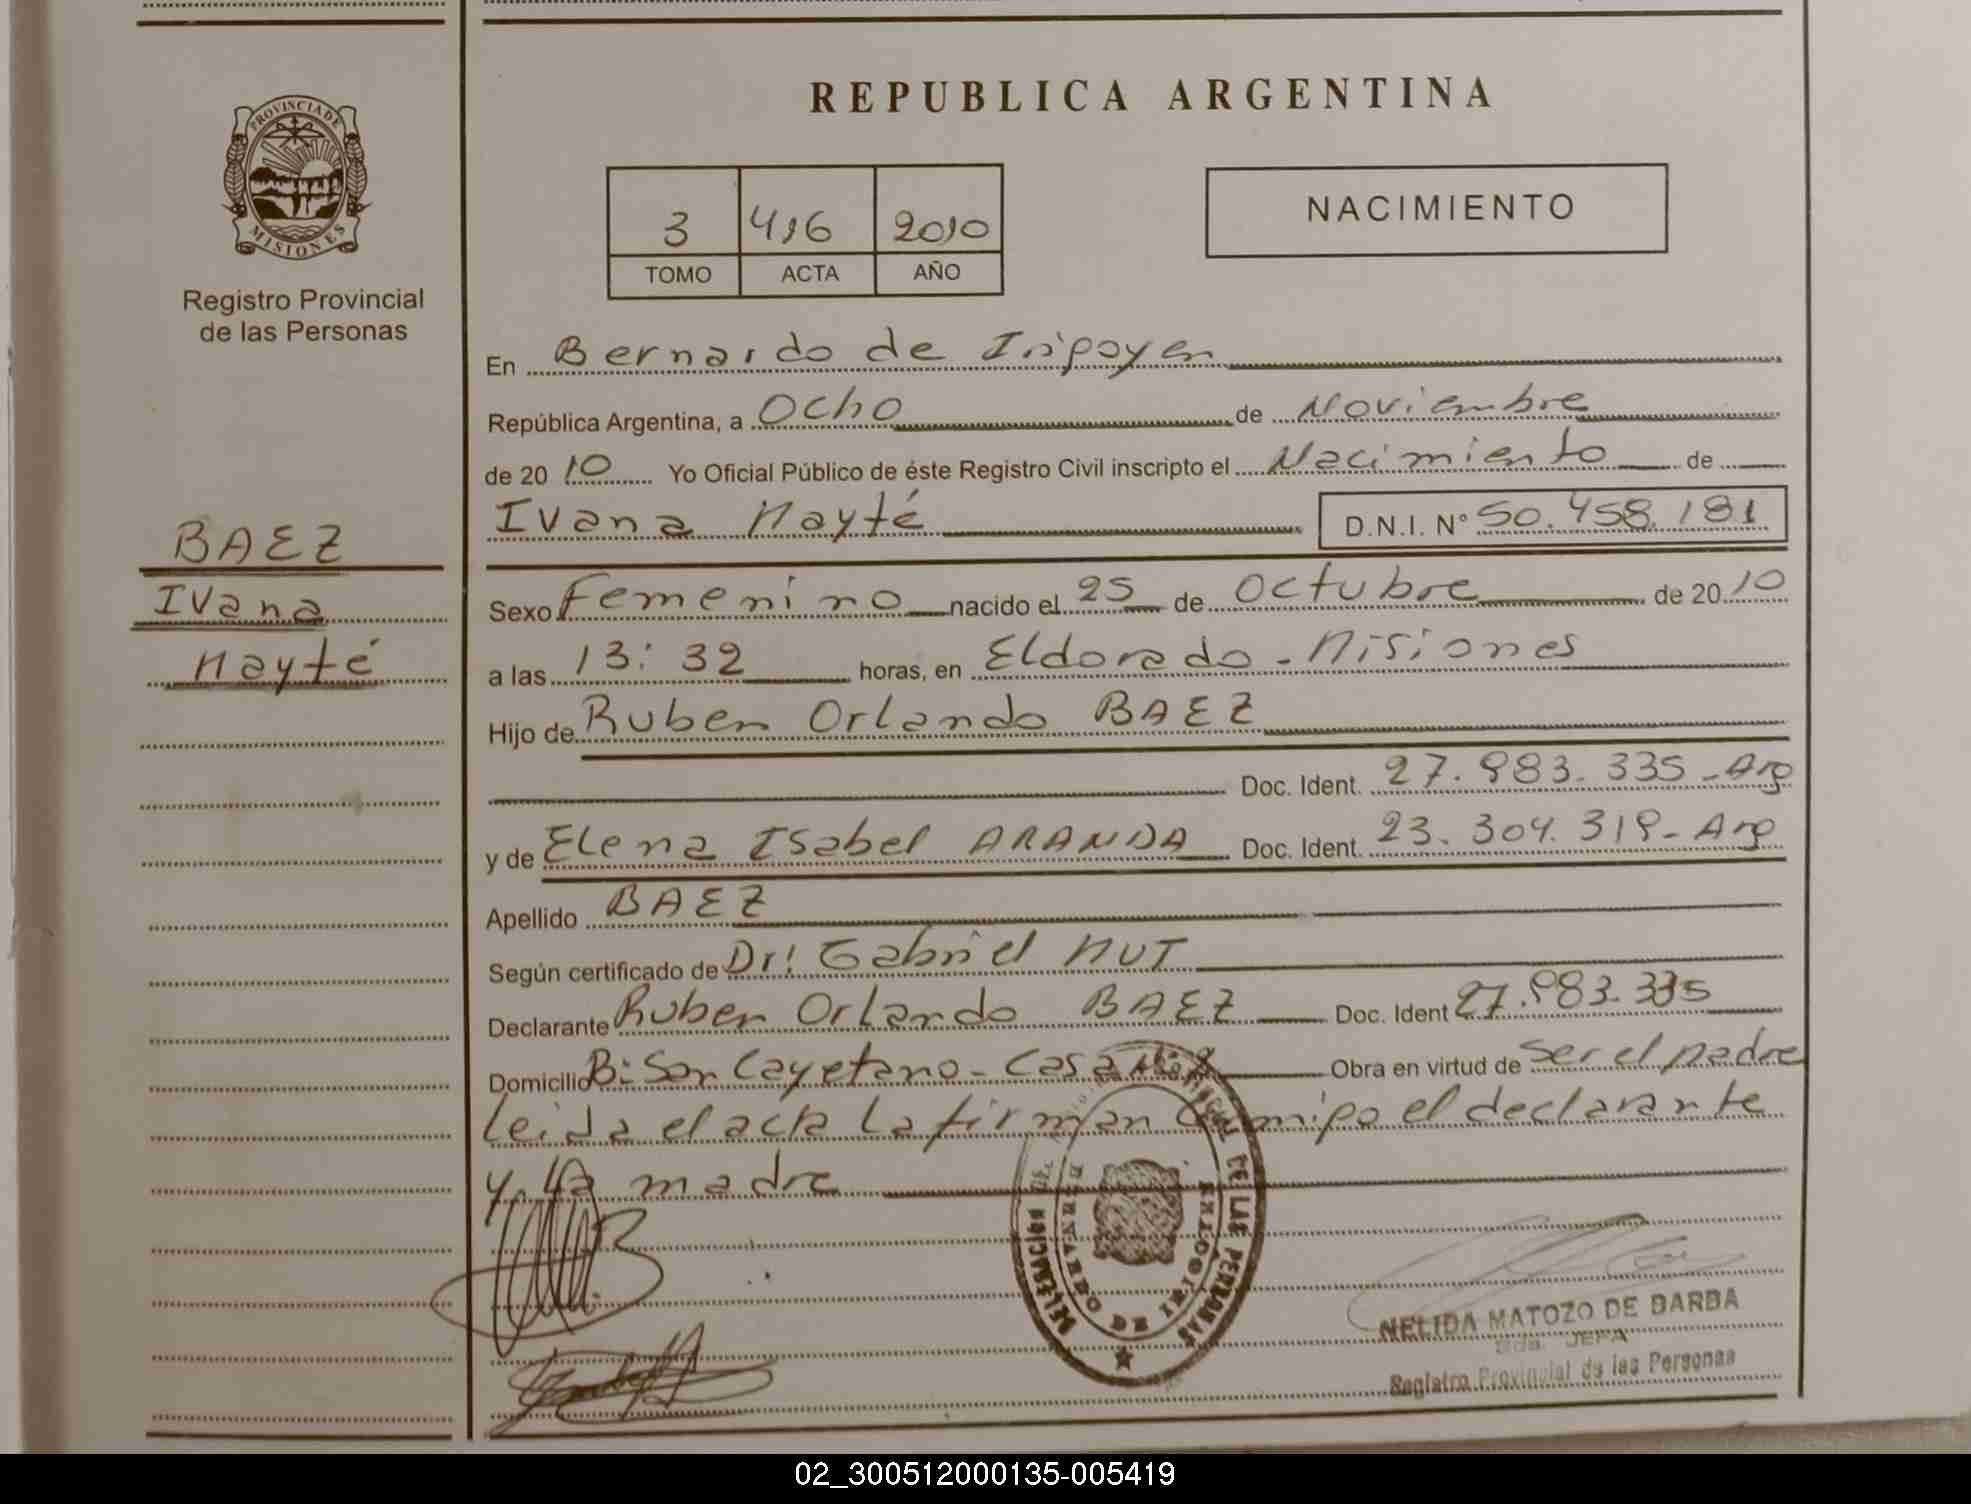 REPUBLICA ARGENTINA
PROVINCIA DE MISIONES
Registro Provincial
de las Personas
3 416 2010
TOMO ACTA AÑO
NACIMIENTO
En Bernardo de Irigoyen
República Argentina, a Ocho de Noviembre
de 2010 Yo Oficial Público de éste Registro Civil inscripto el Nacimiento de
Ivana Mayté D.N.I. N° 50.458.181
BAEZ
Ivana
Mayté
Sexo Femenino nacido el 25 de Octubre de 2010
a las 13:32 horas, en Eldorado - Misiones
Hijo de Ruben Orlando BAEZ
Doc. Ident. 27.983.335 - Arg
y de Elena Isabel ARANDA Doc. Ident. 23.304.319 - Arg
Apellido BAEZ
Según certificado de Dr: Gabriel NUT
Declarante Ruben Orlando BAEZ Doc. Ident 27.983.335
Domicilio B: San Cayetano - Casa Obra en virtud de ser el padre
Leida el acta la firman conmigo el declarante
y la madre
DELEGACIÓN DE LAS PERSONAS
BERNARDO DE IRIGOYEN
NELIDA MATOZO DE DARBA
JEFA
Registro Provincial de las Personas
02_300512000135-005419